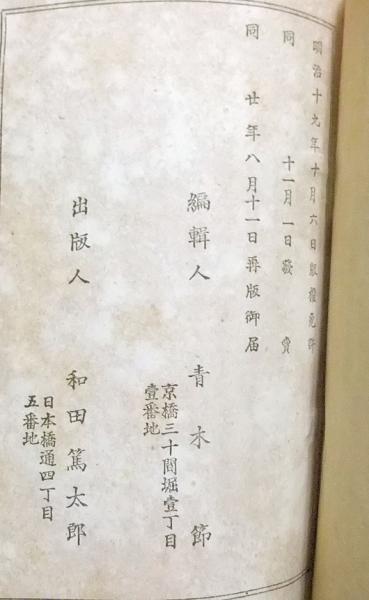 明治十九年十月六日版權免許
同 十一月一日發賣
同 廿年八月十一日再版御届
編輯人 青木節
京橋三十間堀壹丁目
壹番地
出版人 和田篤太郎
日本橋通四丁目
五番地